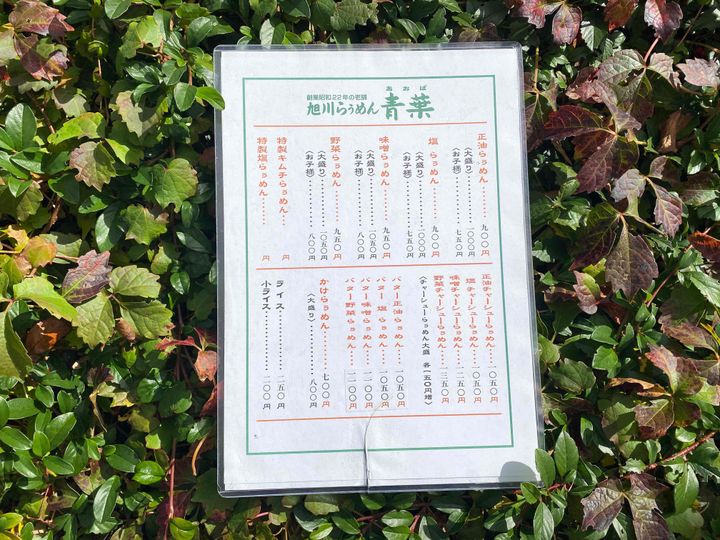 創業昭和22年の老舗
あおば
旭川らぅめん 青葉
正油らぅめん……九〇〇円
〈大盛り〉……一〇〇〇円
〈お子様〉……七五〇円
塩 らぅめん……九〇〇円
〈大盛り〉……一〇〇〇円
〈お子様〉……七五〇円
味噌らぅめん……九五〇円
〈大盛り〉……一〇五〇円
〈お子様〉……八〇〇円
野菜らぅめん……九五〇円
〈大盛り〉……一〇五〇円
〈お子様〉……八〇〇円
特製キムチらぅめん… 円
特製塩らぅめん…… 円
正油チャーシューらぅめん…一〇五〇円
塩チャーシューらぅめん…一〇五〇円
味噌チャーシューらぅめん…一一五〇円
野菜チャーシューらぅめん
〈チャーシューらぅめん大盛 各一五〇円増〉
バター正油らぅめん…一〇五〇円
バター 塩 らぅめん…一〇五〇円
バター味噌らぅめん…一一〇〇円
バター野菜らぅめん…一一〇〇円
かけらぅめん……七〇〇円
〈大盛り〉……八〇〇円
ライス…………二五〇円
小ライス…………二〇〇円